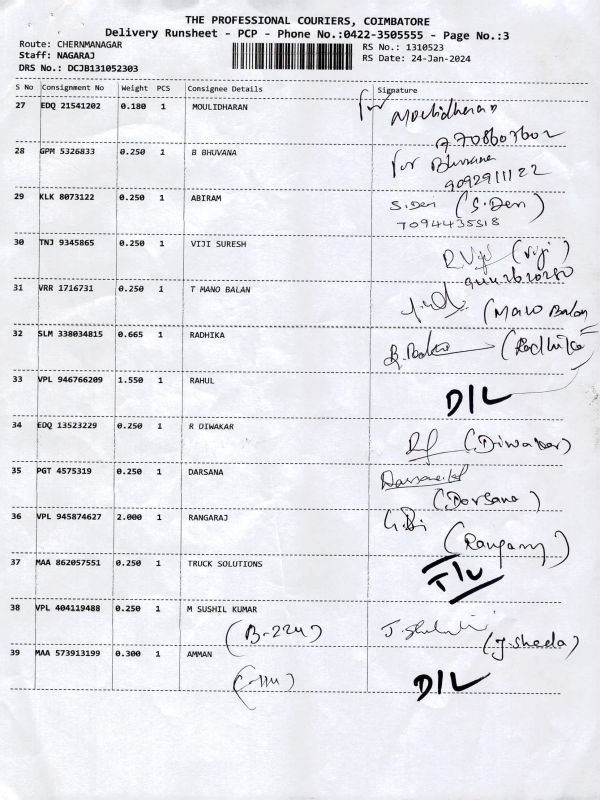 THE PROFESSIONAL COURIERS, COIMBATORE
Delivery Runsheet - PCP - Phone No.:0422-3505555 - Page No.:3
Route: CHERNMANAGAR
RS No.: 1310523
Staff: NAGARAJ
RS Date: 24-Jan-2024
DRS No.: DCJB131052303
S No Consignment No Weight PCS Consignee Details Signature
27 EDQ 21541202 0.180 1 MOULIDHARAN for Moulidharan
7708607602
28 GPM 5326833 0.250 1 B BHUVANA for Bhuvana
9092911122
29 KLK 8073122 0.250 1 ABIRAM S.Den (S.Den)
7094435518
30 TNJ 9345865 0.250 1 VIJI SURESH R.Viji (Viji)
31 VRR 1716731 0.250 1 T MANO BALAN (Mano Balan
32 SLM 338034815 0.665 1 RADHIKA (Radhika
33 VPL 946766209 1.550 1 RAHUL D/L
34 EDQ 13523229 0.250 1 R DIWAKAR (Diwakar)
35 PGT 4575319 0.250 1 DARSANA
(Darsana)
36 VPL 945874627 2.000 1 RANGARAJ
37 MAA 862057551 0.250 1 TRUCK SOLUTIONS
38 VPL 404119488 0.250 1 M SUSHIL KUMAR
(B-224) (J.Sheela)
39 MAA 573913199 0.300 1 AMMAN D/L